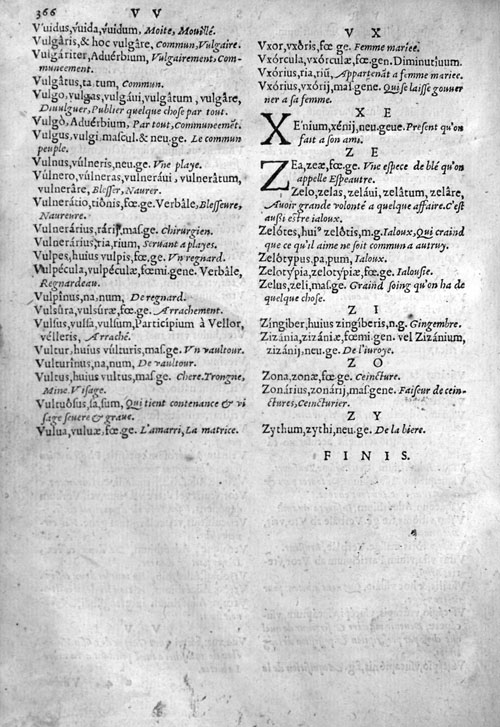 366
V V
Vuidus, vuida, vuidum, Moite, Mouillé.
Vulgâris, & hoc vulgâre, Commun, Vulgaire.
Vulgâriter, Aduérbium, Vulgairement, Com-
muncement.
Vulgâtus, ta, tum, Commun.
Vulgo, vulgas, vulgáui, vulgâtum, vulgâre,
Diuulguer, Publier quelque chose par tout.
Vulgò, Aduérbium, Par tout, Communeemēt.
Vulgus, vulgi, mascul. & neu. ge. Le commun
peuple.
Vulnus, vúlneris, neu. ge. Vne playe.
Vúlnero, vúlneras, vulneráui, vulnerâtum,
vulnerâre, Blesser, Naurer.
Vulnerátio, tiônis, fœ. ge. Verbâle, Blesseure,
Naureure.
Vulnerárius, rárij, maſ. ge. Chirurgien.
Vulnerárius, ria, rium, Seruant a playes.
Vulpes, huius vulpis, fœ. ge. Vn regnard.
Vulpécula, vulpéculæ, fœmi. gene. Verbâle,
Regnardeau.
Vulpînus, na, num, De regnard.
Vulsûra, vulsûræ, fœ. ge. Arrachement.
Vulſus, vulſa, vulſum, Participium à Vellor,
vélleris, Arraché.
Vultur, huius vúlturis, maſ. ge. Vn vaultour.
Vulturînus, na, num, De vaultour.
Vultus, huius vultus, maſ. ge. Chere, Trongne,
Mine, Visage.
Vultuôſus, ſa, ſum, Qui tient contenance & vi
sage seuere & graue.
Vulua, vuluæ, fœ. ge. L'amarri, La matrice.
V X
Vxor, vxôris, fœ. ge. Femme mariee.
Vxórcula, vxórculæ, fœ. gen. Diminutiuum.
Vxórius, ria, riū, Appartenāt a femme mariee.
Vxórius, vxórij, maſ. gene. Qui se laisse gouuer
ner a sa femme.
X E
XE'nium, xénij, neu. geue. Present qu'on
fait a son ami.
Z E
ZEa, zeæ, fœ. ge. Vne espece de blé qu'on
appelle Espeautre.
Zelo, zelas, zeláui, zelâtum, zelâre,
Auoir grande volonté a quelque affaire. C'est
aussi estre ialoux.
Zelótes, huiꝰ zelôtis, m. g. Ialoux, Qui craind
que ce qu'il aime ne soit commun a autruy.
Zelôtypus, pa, pum, Ialoux.
Zelotýpia, zelotýpiæ, fœ. ge. Ialousie.
Zelus, zeli, maſ. ge. Graind soing qu'on ha de
quelque chose.
Z I
Zíngiber, huius zingíberis, n. g. Gingembre.
Zizánia, zizániæ, fœmini. gen. vel Zizánium,
zizánij, neu. ge. De l'iuroye.
Z O
Zona, zonæ, fœ. ge. Ceincture.
Zonárius, zonárij, maſ. gene. Faiseur de cein-
ctures, Ceincturier.
Z Y
Zythum, zythi, neu. ge. De la biere.
F I N I S.